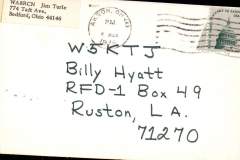 WA8RCN Jim Turle
774 Taft Ave,
Bedford, Ohio 44146
AKRON, OH
PM
W5KTJ
Billy Hyatt
RFD-1 Box 49
Ruston, LA.
71270